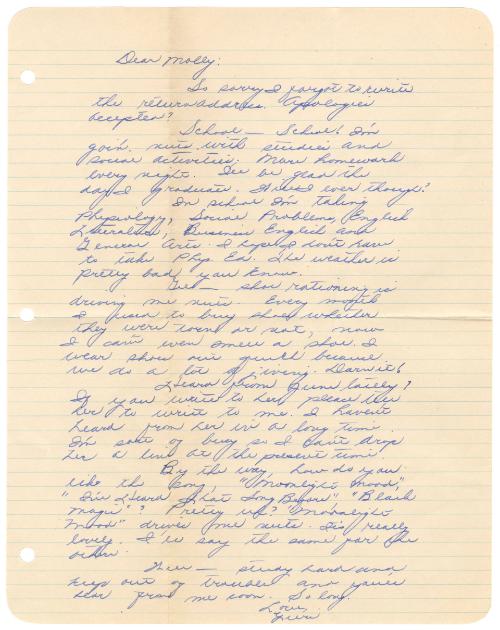 Dear Molly:
So sorry I forgot to write
the return address. Apologies
accepted?
School — School! I'm
goin' nuts with studies and
social activities. More homework
every night. I'll be glad the
day I graduate. Will I ever though?
In school I'm taking
Physiology, Social Problems, English
Literature, Business English and
General Arts. I hope I don't have
to take Phy. Ed. The weather is
pretty bad, you know.
Gee — shoe rationing is
driving me nuts. Every month
I used to buy shoes whether
they were torn or not, now
I can't even smell a shoe. I
wear shoes out quick because
we do a lot of jiving. Darn it!
Heard from June lately?
If you write to her, please tell
her to write to me. I haven't
heard from her in a long time.
I'm sort of busy so I can't drop
her a line at the present time.
By the way, how do you
like the song, "Moonlight Mood",
"I've Heard That Song Before", "Black
Magic"? Pretty up? "Moonlight
Mood" drives me nuts. It's really
lovely. I'll say the same for the
other.
Well — study hard and
keep out of trouble and you'll
hear from me soon. So long
Love,